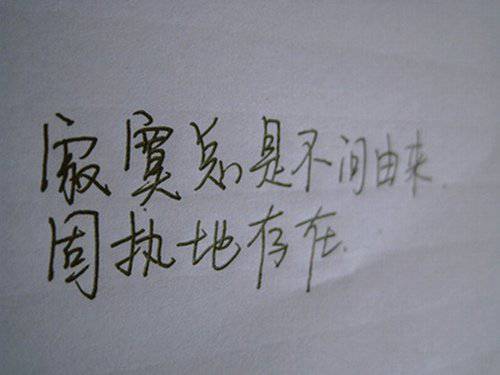 寂寞总是不问由来
固执地存在